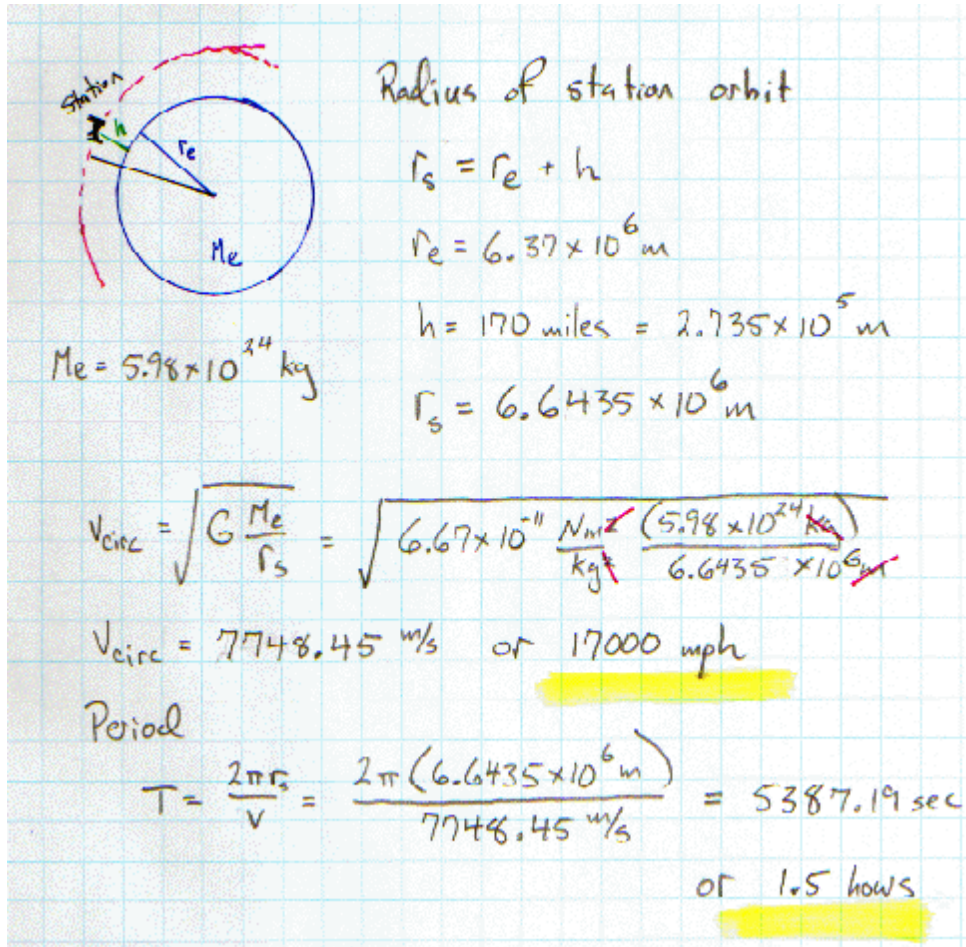 Station
h
re
Me
Radius of station orbit
rs = re + h
re = 6.37 × 10⁶ m
h = 170 miles = 2.735 × 10⁵ m
Me = 5.98 × 10²⁴ kg
rs = 6.6435 × 10⁶ m
Vcirc = √(G Me/rs) = √(6.67 × 10⁻¹¹ Nm²/kg² (5.98 × 10²⁴ kg)/(6.6435 × 10⁶ m))
Vcirc = 7748.45 m/s or 17000 mph
Period
T = 2πrs/v = 2π(6.6435 × 10⁶ m)/(7748.45 m/s) = 5387.19 sec
or 1.5 hours